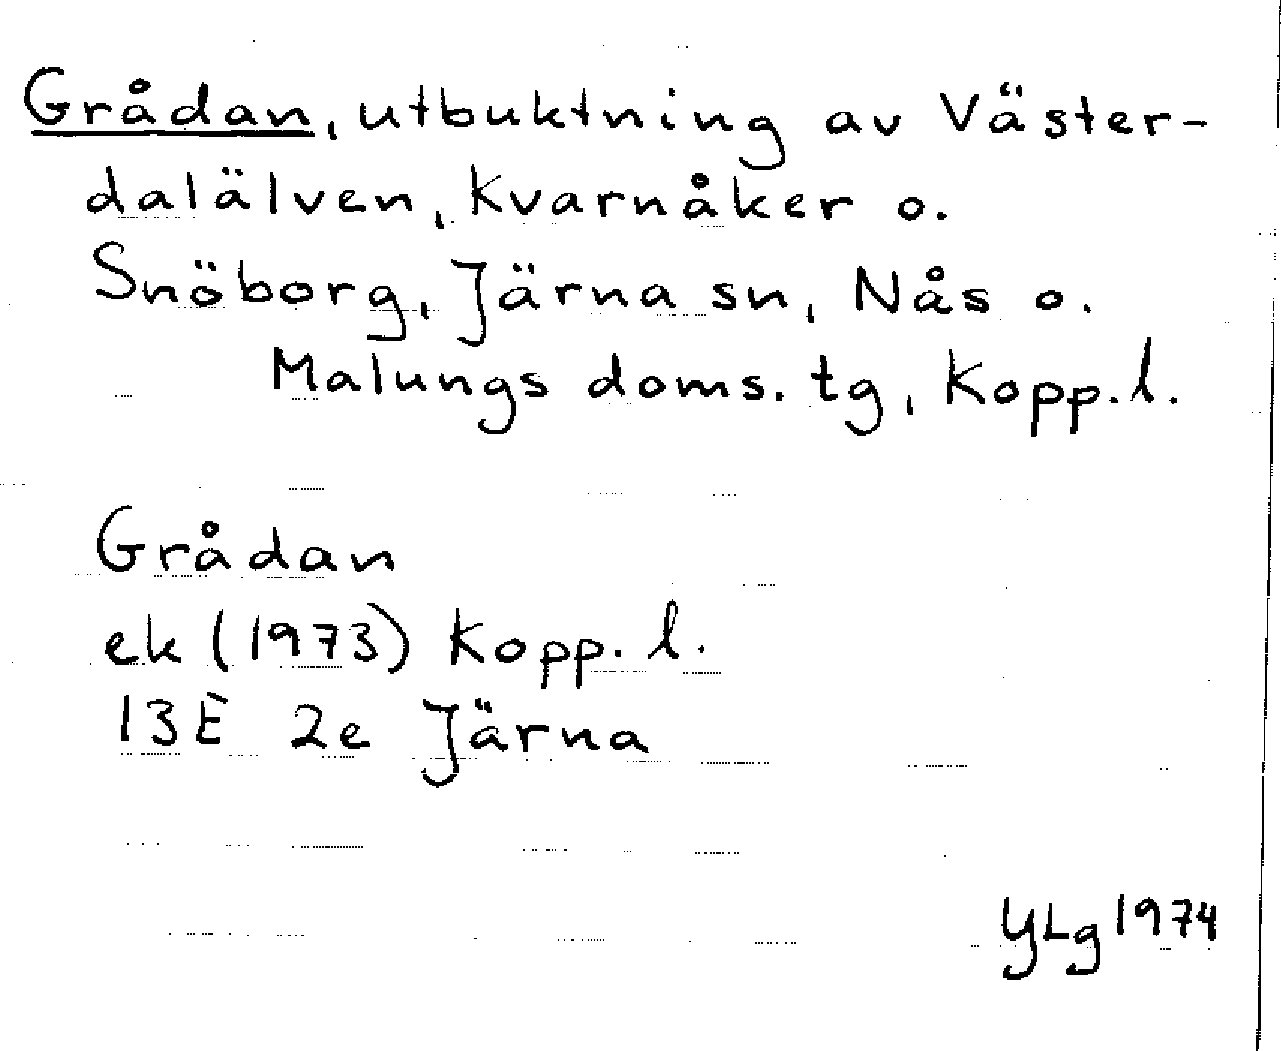 Grådan, utbuktning av Väster-
dalälven, Kvarnåker o.
Snöborg, Järna sn, Nås o.
Malungs doms. tg, Kopp. l.
Grådan
ek (1973) Kopp. l.
13E 2e Järna
YLg 1974